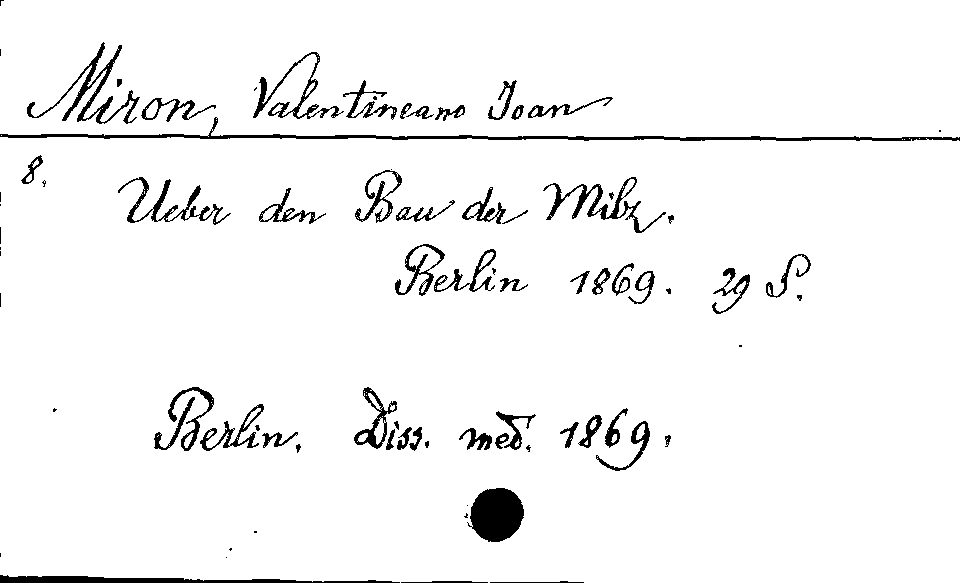 Miron, Valentineano Joan
8.
Ueber den Bau der Milz.
Berlin 1869. 29 S.
Berlin. Diss. med. 1869.